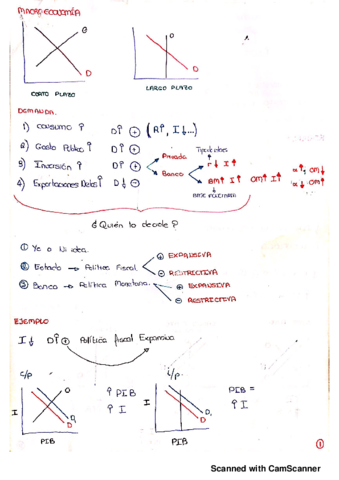 MACROECONOMÍA
O
D
CORTO PLAZO
O
D
LARGO PLAZO
DEMANDA.
1) Consumo ↑ D↑ ⊕ (R↑, I↓...)
2) Gasto Público ↑ D↑ ⊕
Tipo de interés
3) Inversión ↑ D↑ ⊕ Privada r↓ I↑
Banco BM↑ I↑ OM↑ I↑
α↑, OM↓
α↓ OM↑
4) Exportaciones D↓ ⊖
BASE MONETARIA
¿Quién lo decide?
① Yo o Ni idea.
② Estado → Política Fiscal ⊕ EXPANSIVA
⊖ RESTRICTIVA
③ Banco → Política Monetaria. ⊕ EXPANSIVA
⊖ RESTRICTIVA
EJEMPLO
I↓ D↑⊕ Política fiscal Expansiva
C/P
I
O
D₁
D
PIB
↑ PIB
↑ I
L/P
I
D₁
D
PIB
PIB =
↑ I
①
Scanned with CamScanner